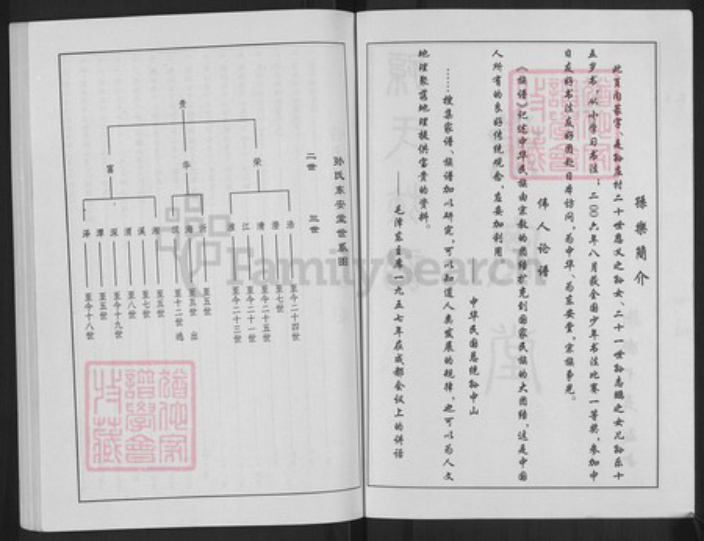 孫樂簡介
此頁內篆字、是孙庄村二十世忠义之孙女、二十一世孙志鵬之女儿孙乐十
五岁书、从小学习书法；二〇〇六年八月获全国少年书法比赛一等奖，参加中
日友好书法友好团赴日本访问，为中华、为东安堂，宗族争光。
伟人论谱
《族谱》记述中华民族由宗教的团结扩充到国家民族的大团结，这是中国
人所有的良好传统观念，应妥加利用
中华民国总统孙中山
……搜集家谱、族谱加以研究，可以知道人类发展的规律，也可以为人文
地理聚落地理提供宝贵的资料。
毛泽东主席一九五七年在成都会议上的讲话
孙氏东安堂世系图
二世 三世
贵
荣
华
富
浩 至今二十四世
澄 至七世
清 至今二十五世
江 至今二十一世
淮 至今二十三世
沂 至五世
海 至五世 出
汉 至十二世 逃
湘 至五世
溪 至七世
渭 至八世
深 至今十九世
潭 至五世
泽 至今十八世
FamilySearch